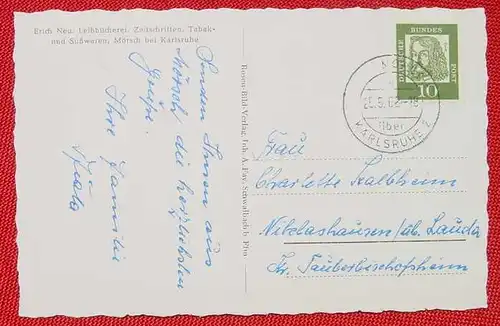 Erich Neu, Leihbücherei, Zeitschriften, Tabak-
und Süßwaren, Mörsch bei Karlsruhe
Senden Ihnen aus
Mörsch die herzlichsten
Grüße.
Ihre Familie
Rosen-Bild-Verlag, Inh. A. Fay, Schwalbach b.
DEUTSCHE BUNDES POST
10
über
KARLSRUHE 2
Frau
Charlotte Kalbheim
Nikolashausen/üb. Lauda
Kr. Tauberbischofsheim